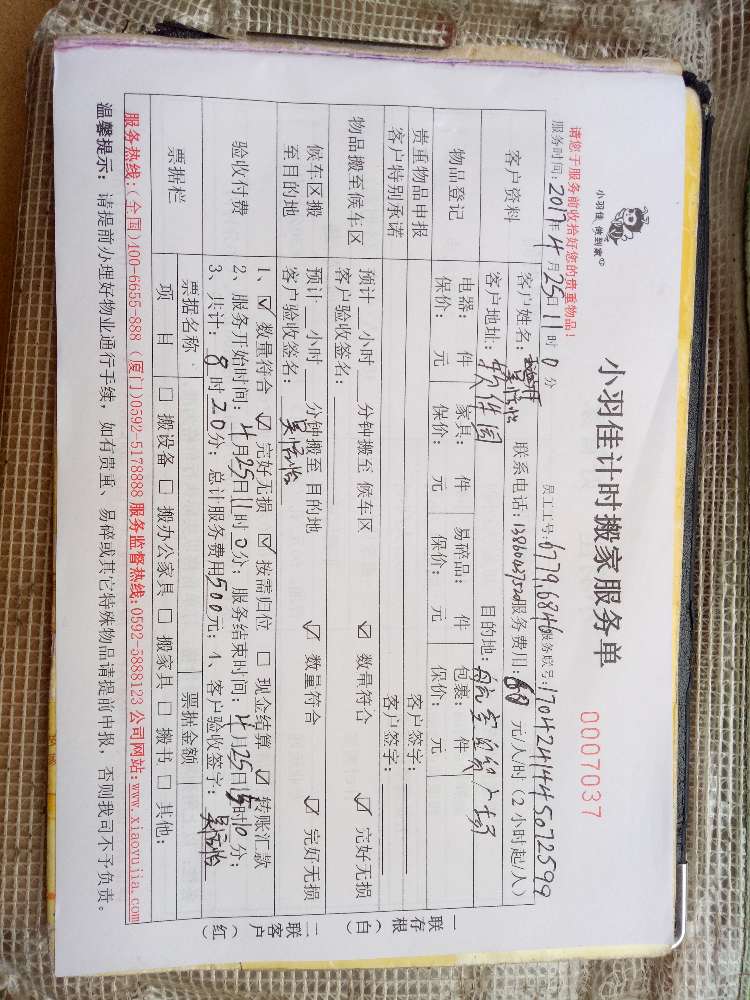 小羽佳 做到家
小羽佳计时搬家服务单
0007037
请您于服务前收拾好您的贵重物品!
服务时间: 2017年4月25日11时0分 员工工号: 6779,6846 服务联号: 17042414445072599
客户资料
客户姓名: 联系电话: 服务费用: 元/人/时 (2小时起/人)
客户地址: 软件园 目的地: 航空商务广场
物品登记
电器: 件 家具: 件 易碎品: 件 包裹: 件
保价: 元 保价: 元 保价: 元 保价: 元
贵重物品申报 客户签字:
客户特别承诺 客户签字:
物品搬至候车区
预计__小时__分钟搬至 候车区 ☑ 数量符合 ☑ 完好无损
客户验收签名:
候车区搬至目的地
预计__小时__分钟搬至 目的地 ☑ 数量符合 ☑ 完好无损
客户验收签名:
验收付费
1、☑ 数量符合 ☑ 完好无损 ☑ 按需归位 □ 现金结算 ☑ 转账汇款
2、服务开始时间: 4月25日11时0分; 服务结束时间: 4月25日15时10分;
3、共计: 8时20分; 总计服务费用500元; 4、客户验收签字:
票据栏
票据名称 票据金额
项 目 □ 搬设备 □ 搬办公家具 □ 搬家具 □ 搬书 □ 其他:
服务热线:(全国)400-6655-888 (厦门)0592-5178888 服务监督热线:0592-5888123 公司网站:www.xiaoyujia.com
温馨提示: 请提前办理好物业通行手续, 如有贵重、易碎或其它特殊物品请提前申报, 否则我司不予负责。
一联存根(白)
二联客户(红)